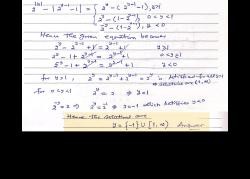 2^|y| - |2^(y-1) - 1| = { 2^y - (2^(y-1) - 1), y≥1
2^y - (1 - 2^(y-1)), 0<y<1
2^-y - (1 - 2^(y-1)), y<0
Hence the given equation becomes
2^y - 2^(y-1) + 1 = 2^(y-1) + 1 y≥1
2^y - 1 + 2^(y-1) = 2^(y-1) + 1 0<y≤1
2^-y - 1 + 2^(y-1) = 2^(y-1) + 1 y<0
for y>1, 2^y = 2^(y-1) + 2^(y-1) = 2^y is satisfied for
solutions are
for 0<y<1 2^y = 2 y=1
2^-y = 2 ⇒ 2^y = 2^-1 ⇒ y=-1 which satisfies y<0
Hence the solutions are
y = {-1} ∪ [1, ∞) Answer